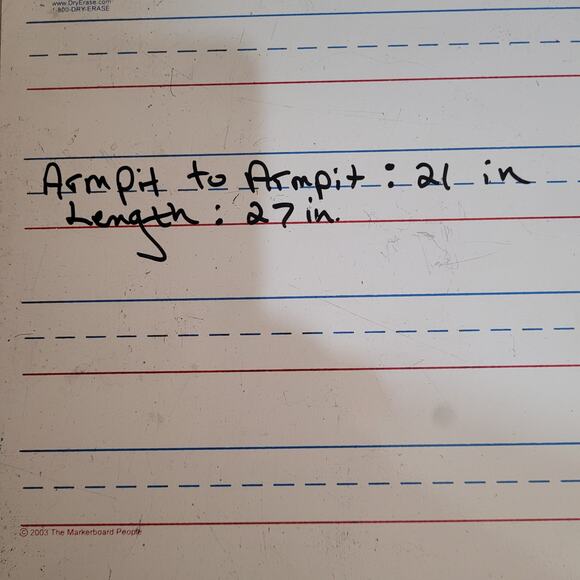 www.DryErase.com
1-800-DRY-ERASE
Armpit to Armpit : 21 in
Length : 27 in.
© 2003 The Markerboard People